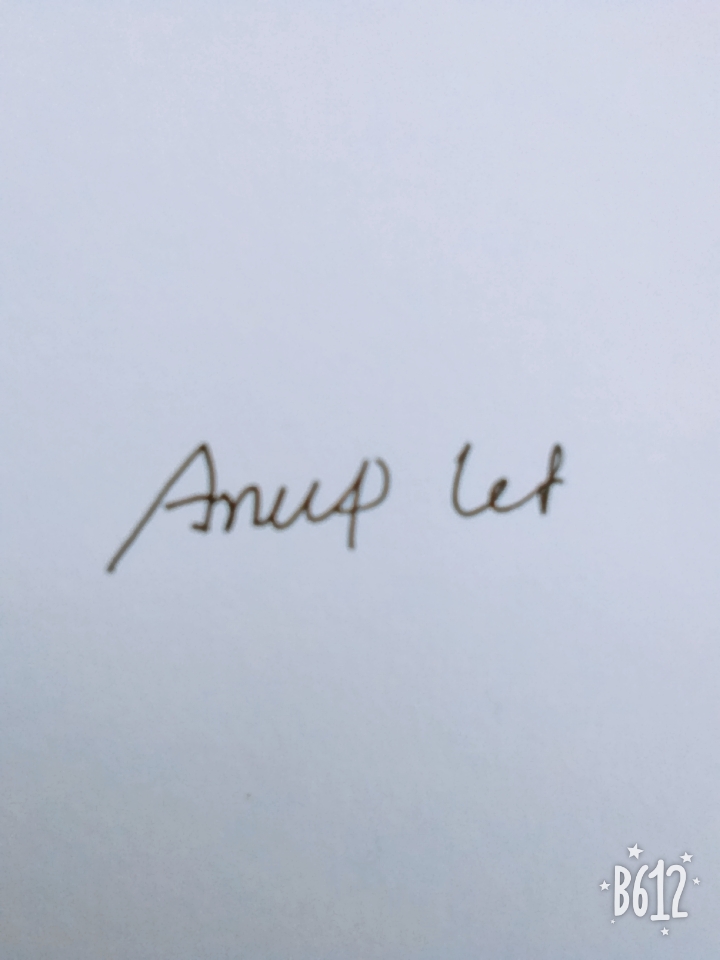 Anup Let
B612